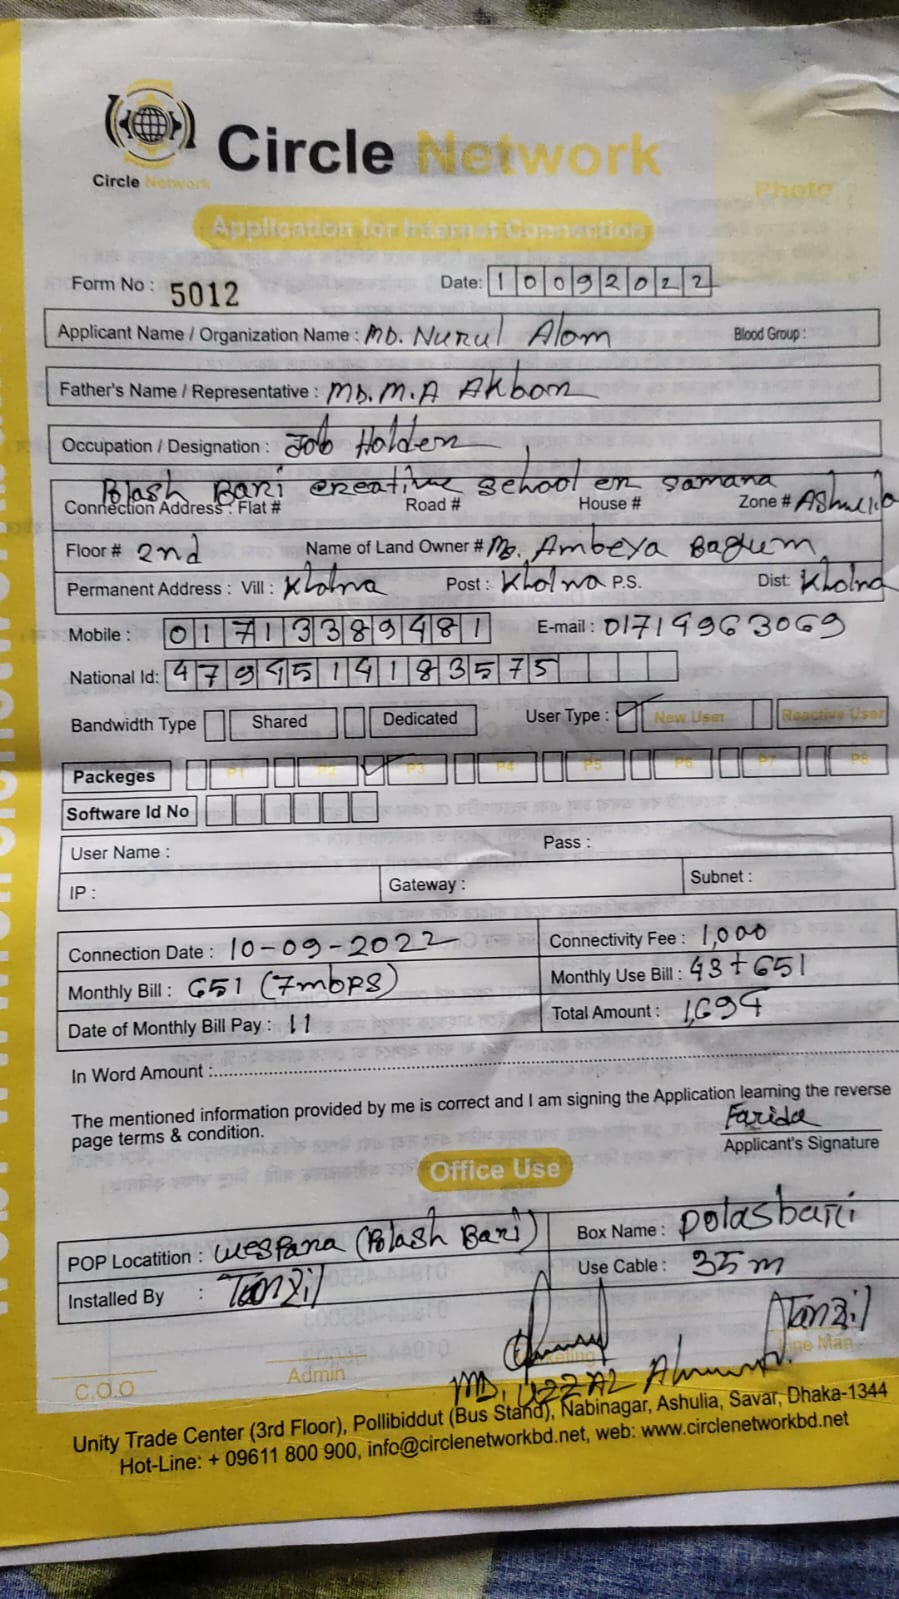 Circle Network
Circle Network
Photo
Application for Internet Connection
Form No : 5012 Date: 10092022
Applicant Name / Organization Name : MD. Nurul Alom Blood Group :
Father's Name / Representative : MD. M.A Akbor
Occupation / Designation : Job Holder
Polash Bari creative school er samana
Connection Address : Flat # Road # House # Zone # Ashulia
Floor # 2nd Name of Land Owner # Ambeya Begum
Permanent Address : Vill : Kholna Post : Kholna P.S. Dist: Kholna
Mobile : 01713389481 E-mail : 01719963069
National Id: 4794514183575
Bandwidth Type Shared Dedicated User Type : New User Reactive User
Packeges P1 P2 P3 P4 P5 P6 P7 P8
Software Id No
User Name : Pass :
IP : Gateway : Subnet :
Connection Date : 10-09-2022 Connectivity Fee : 1,000
Monthly Bill : 651 (7mbps) Monthly Use Bill : 43+651
Date of Monthly Bill Pay : 11 Total Amount : 1,694
In Word Amount :
The mentioned information provided by me is correct and I am signing the Application learning the reverse
page terms & condition.
Farida
Applicant's Signature
Office Use
POP Locatition : (Polash Bari) Box Name : polasbari
Installed By : Tanzil Use Cable : 35m
Tanzil
C.O.O Admin Marketing Line Man
MD. UZZAL
Unity Trade Center (3rd Floor), Pollibiddut (Bus Stand), Nabinagar, Ashulia, Savar, Dhaka-1344
Hot-Line: + 09611 800 900, info@circlenetworkbd.net, web: www.circlenetworkbd.net